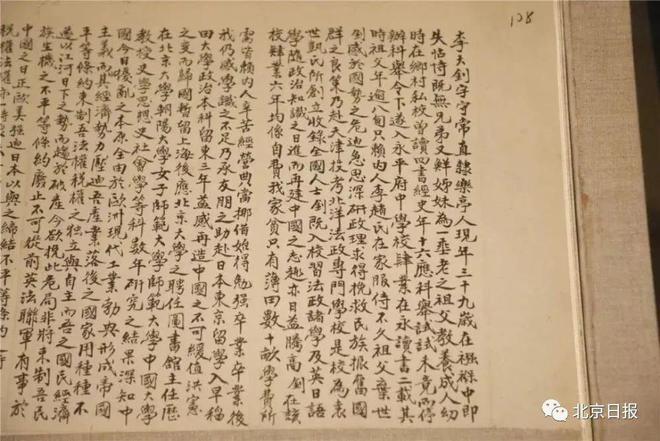 128
李大釗字守常直隸樂亭人現年三十九歲在襁褓中即
失怙恃既無兄弟又鮮姊妹為一垂老之祖父教養成人幼
時在鄉村私校曾讀四書經史年十六應科舉試試未竟而停
辦科舉令下遂入永平府中學校肄業在永讀書二載其
時祖父年逾八旬只賴內人李趙氏在家服侍不久祖父棄世
釗感於國勢之危迫急思深研政理求得挽救民族振奮國
群之良策乃赴天津投考北洋法政專門學校是校為袁
世凱氏所創立收錄全國人士釗既入校習法政諸學及英日語
學隨政治知識之日進而再建中國之志趣亦日益騰高釗在該
校肄業六年均係自費我家貧只有薄田數十畝學費所
需皆賴內人辛苦經營典當挪借始得勉強卒業卒業後
我仍感學識之不足乃承友朋之助赴日本東京留學入早稻
田大學政治本科留東三年益感再造中國之不可緩值洪憲
之變而歸國暫留上海後應北京大學之聘任圖書館主任歷
在北京大學朝陽大學女子師範大學師範大學中國大學
教授史學思想史社會學等科數年研究之結果深知中
國今日擾亂之本原全由於歐洲現代工業勃興形成帝國
主義而其經濟勢力壓迫吾產業落後之國家用種種不
平等條約束制吾法權稅權之獨立與自主而吾之國民經濟
遂以江河日下之勢而趨於破產今欲挽此危局非將束制吾民
族生機之不平等條約廢止不可從前英法聯軍有事於
中國之日正歐美強迫日本以與之締結不平等條約之時
稅權法權
北京日报